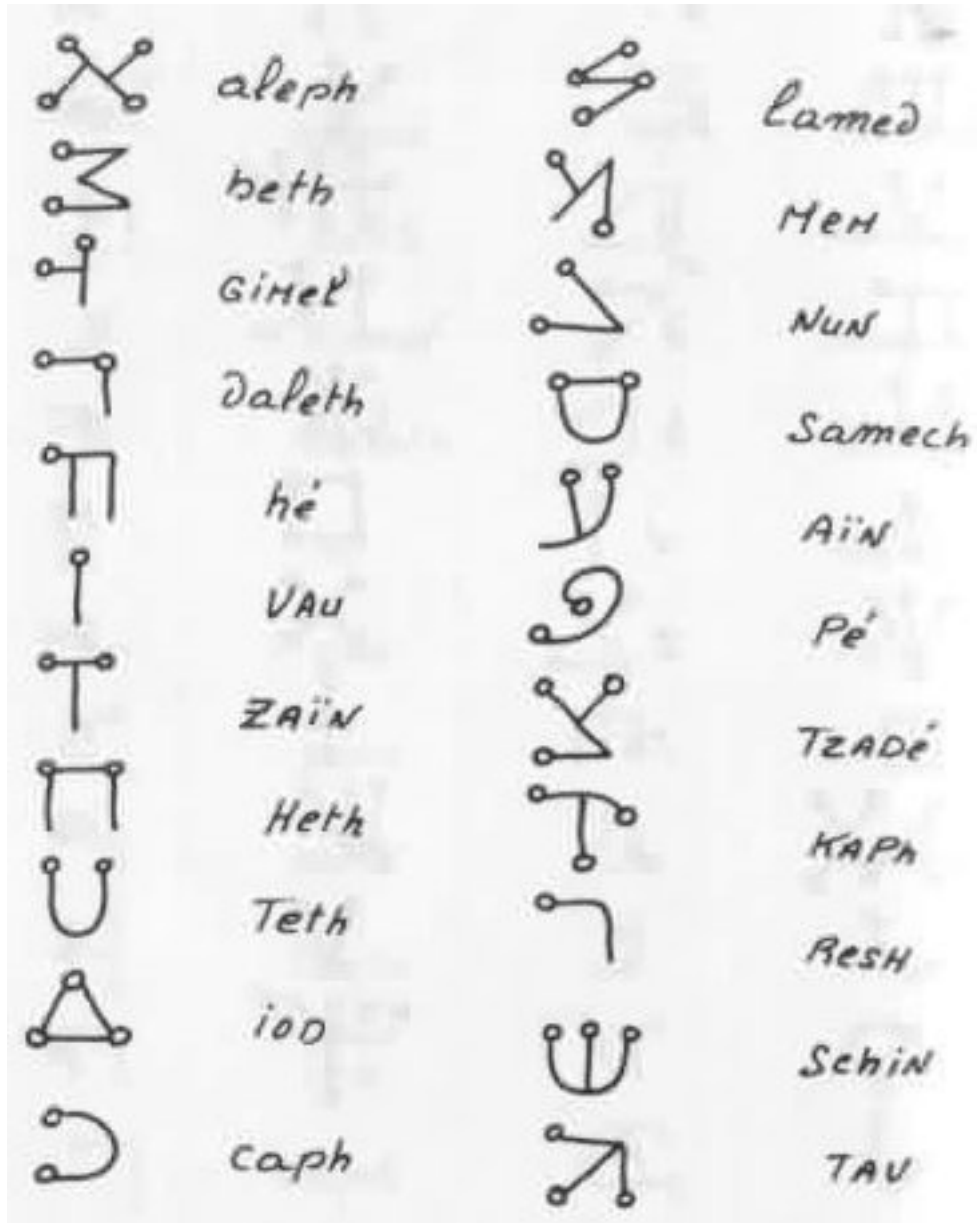 aleph
beth
GiMeL
daleth
hé
VAu
ZAïN
Heth
Teth
ioD
caph
lamed
MeM
NuN
Samech
AïN
Pé
TZADé
KAPh
ResH
SchiN
TAU